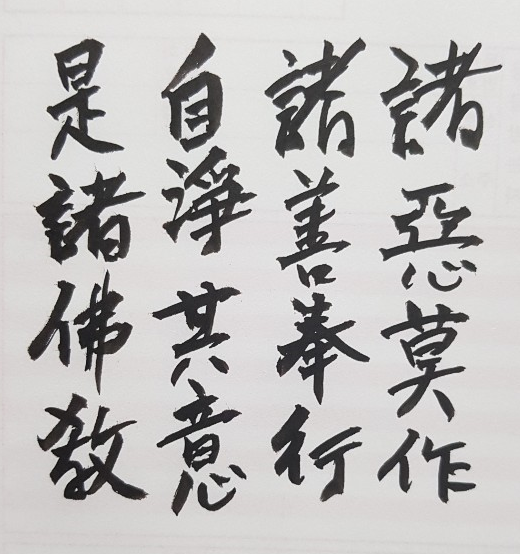 諸惡莫作
諸善奉行
自淨其意
是諸佛教